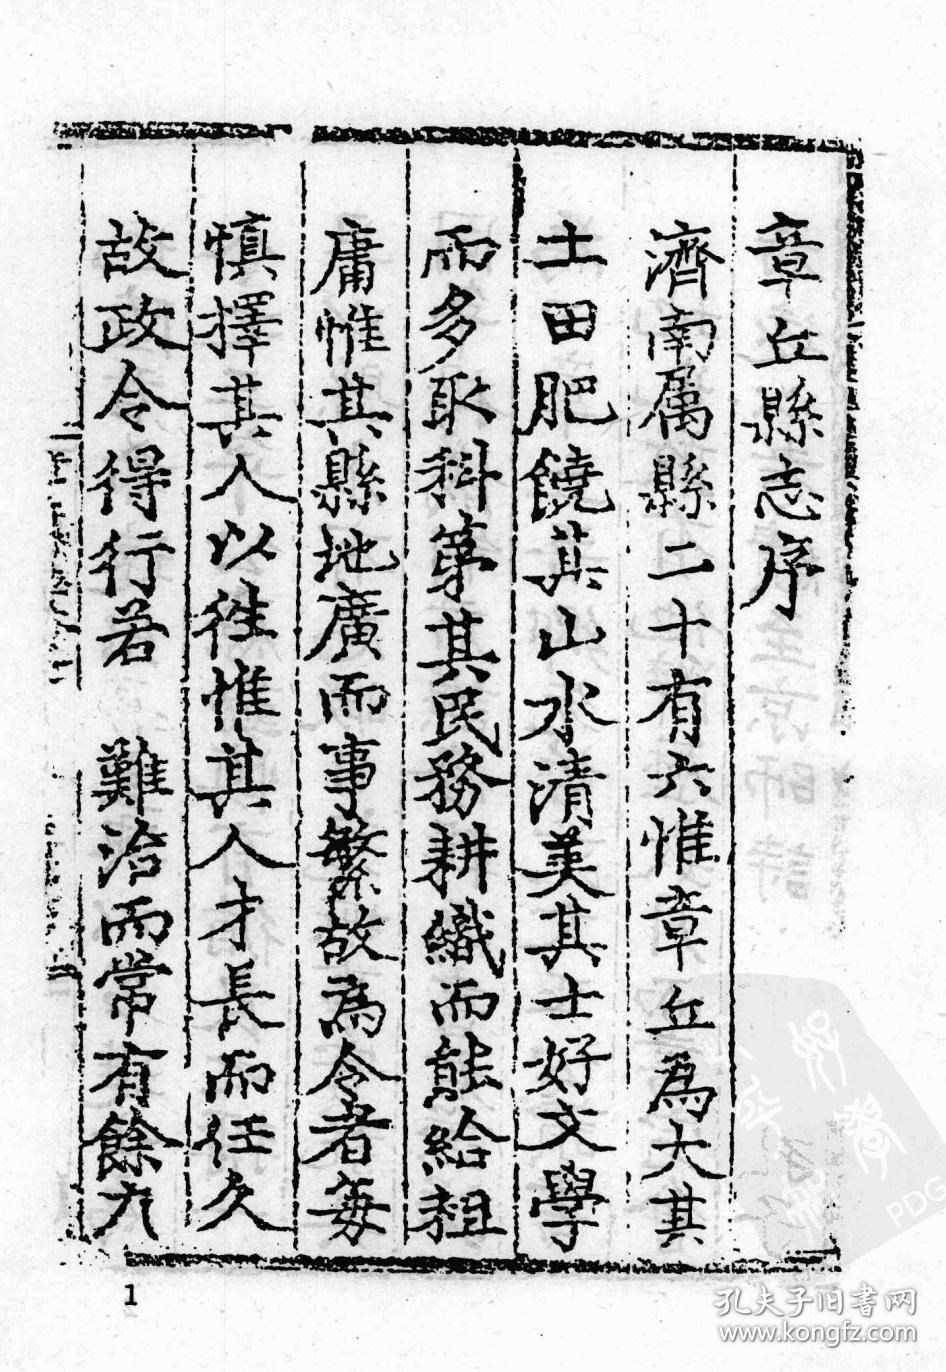 章丘縣志序
濟南屬縣二十有六惟章丘為大其
土田肥饒其山水清美其士好文學
而多取科第其民務耕織而能給租
庸惟其縣地廣而事繁故為令者每
慎擇其人以往惟其人才長而任久
故政令得行若 難治而常有餘力
1
PDG
孔夫子旧書网
www.kongfz.com